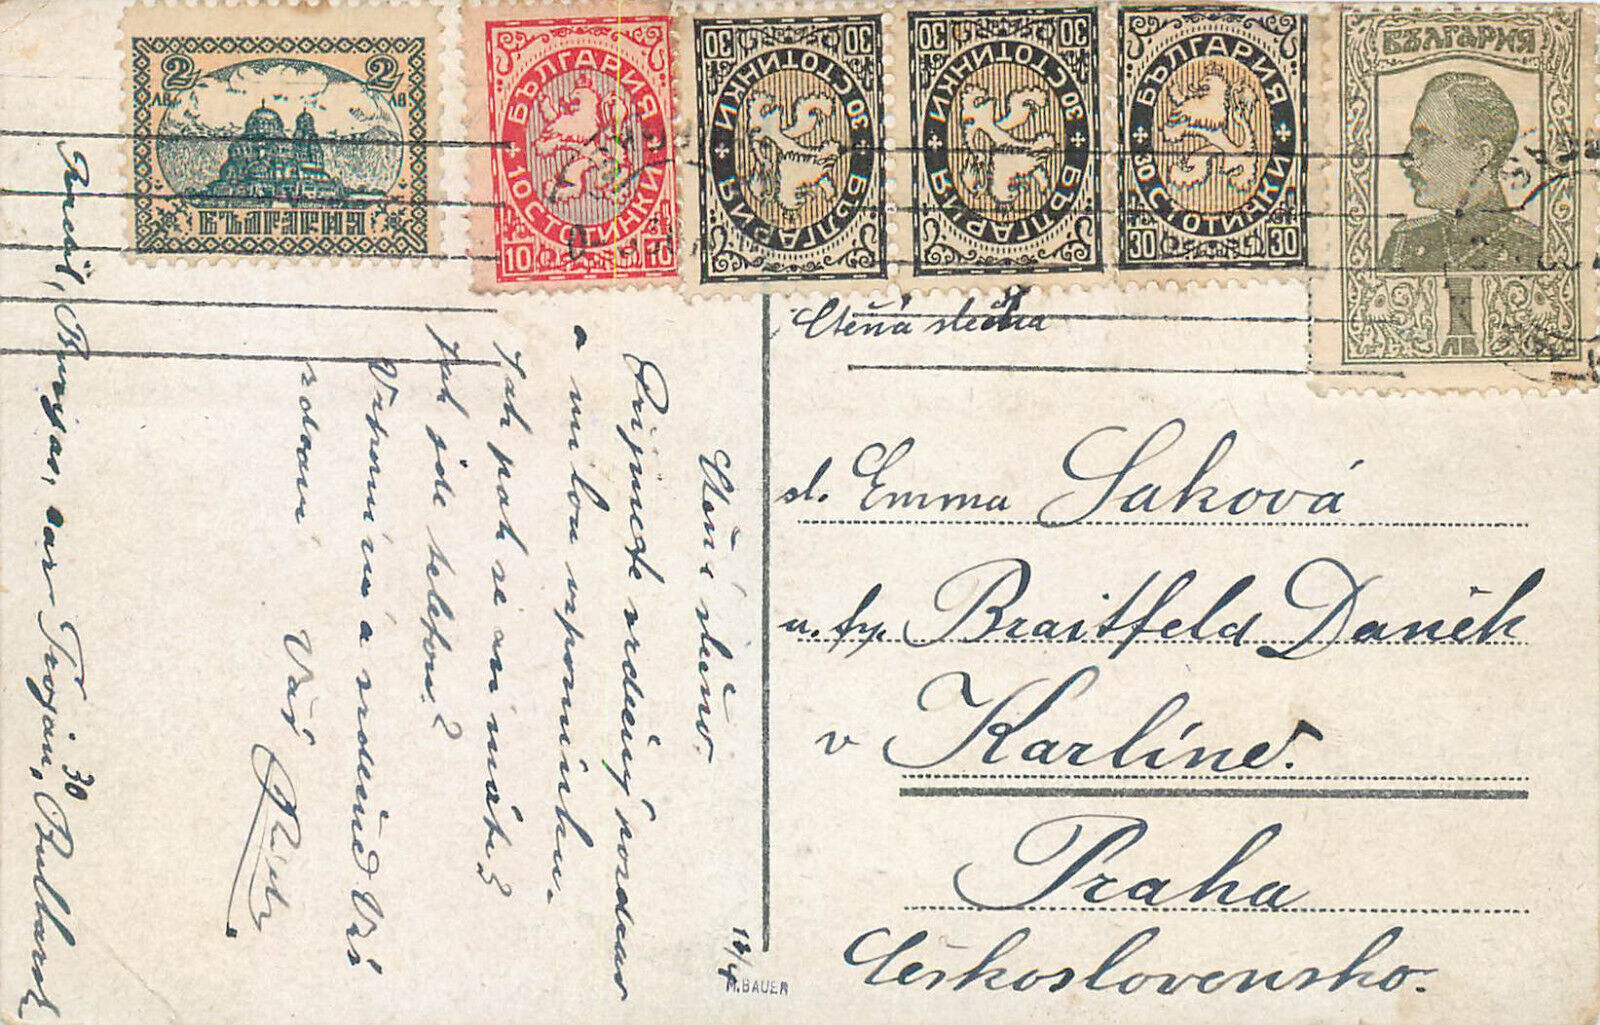 2 2
ЛВ ЛВ
БЪЛГАРИЯ
БЪЛГАРИЯ
10 СТОТИНКИ
10 10
БЪЛГАРИЯ
30 СТОТИНКИ
30 30
БЪЛГАРИЯ
30 СТОТИНКИ
30 30
БЪЛГАРИЯ
30 СТОТИНКИ
30 30
БЪЛГАРИЯ
1
ЛВ
Ctěná slečna
sl. Emma Saková
u. fy. Braitfeld Daněk
v Karlíně.
Praha
Československo.
Ctěná slečno.
Přijměte srdečný pozdrav
a milou vzpomínku.
Jak pak se mi máte?
Jak jde telefon?
Vzpomíná a srdečně Vás
zdraví
Váš
Burgas, car Trojan, 30 Bulharsk
M. BAUER